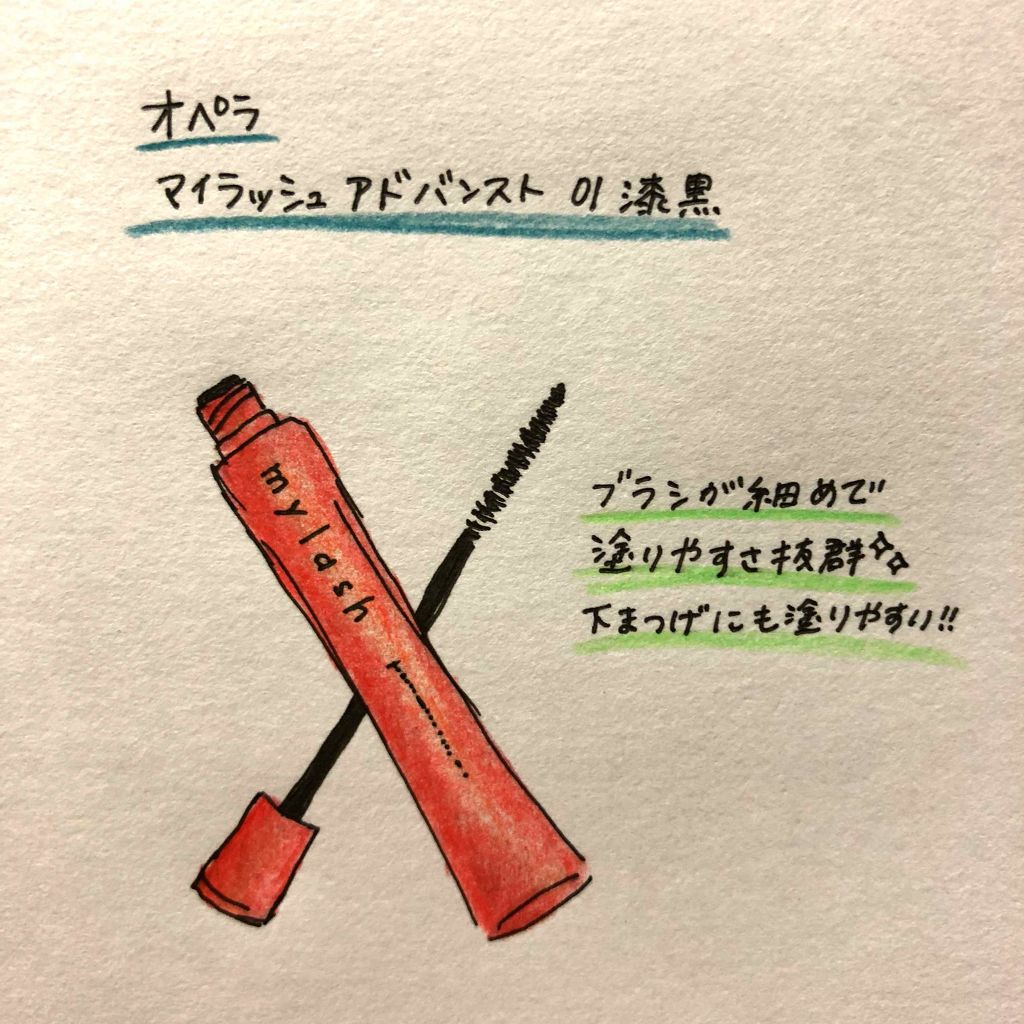 オペラ
マイラッシュ アドバンスト 01 漆黒
mylash
ブラシが細めで
塗りやすさ抜群
下まつげにも塗りやすい!!